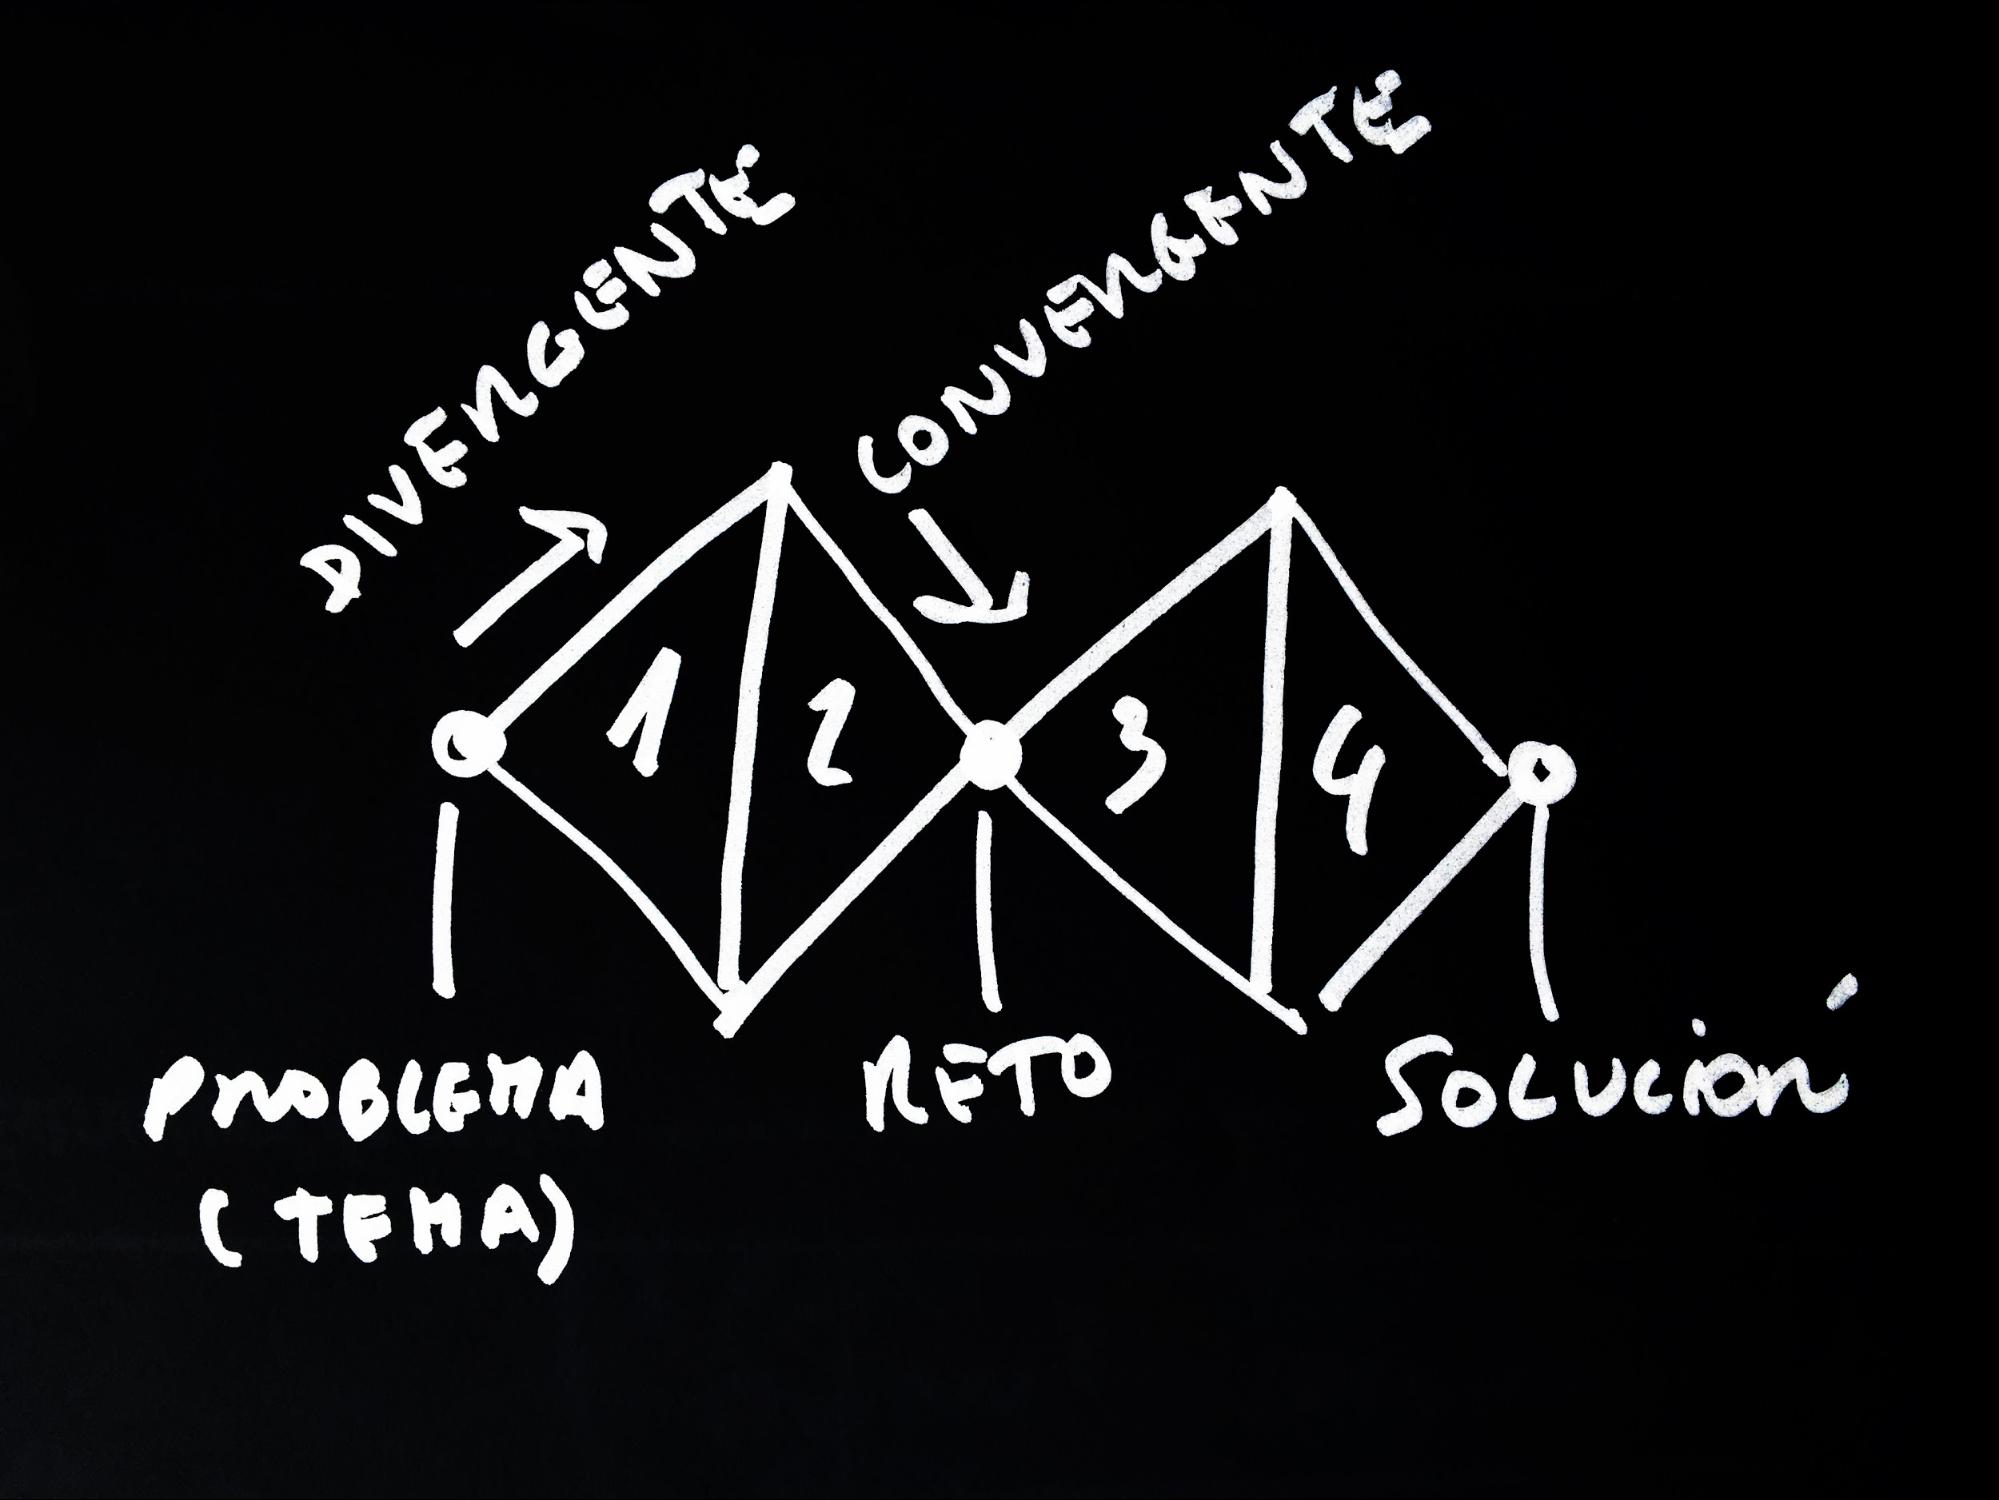 DIVERGENTE
CONVERGENTE
1 2 3 4
PROBLEMA
(TEMA)
RETO
SOLUCIÓN